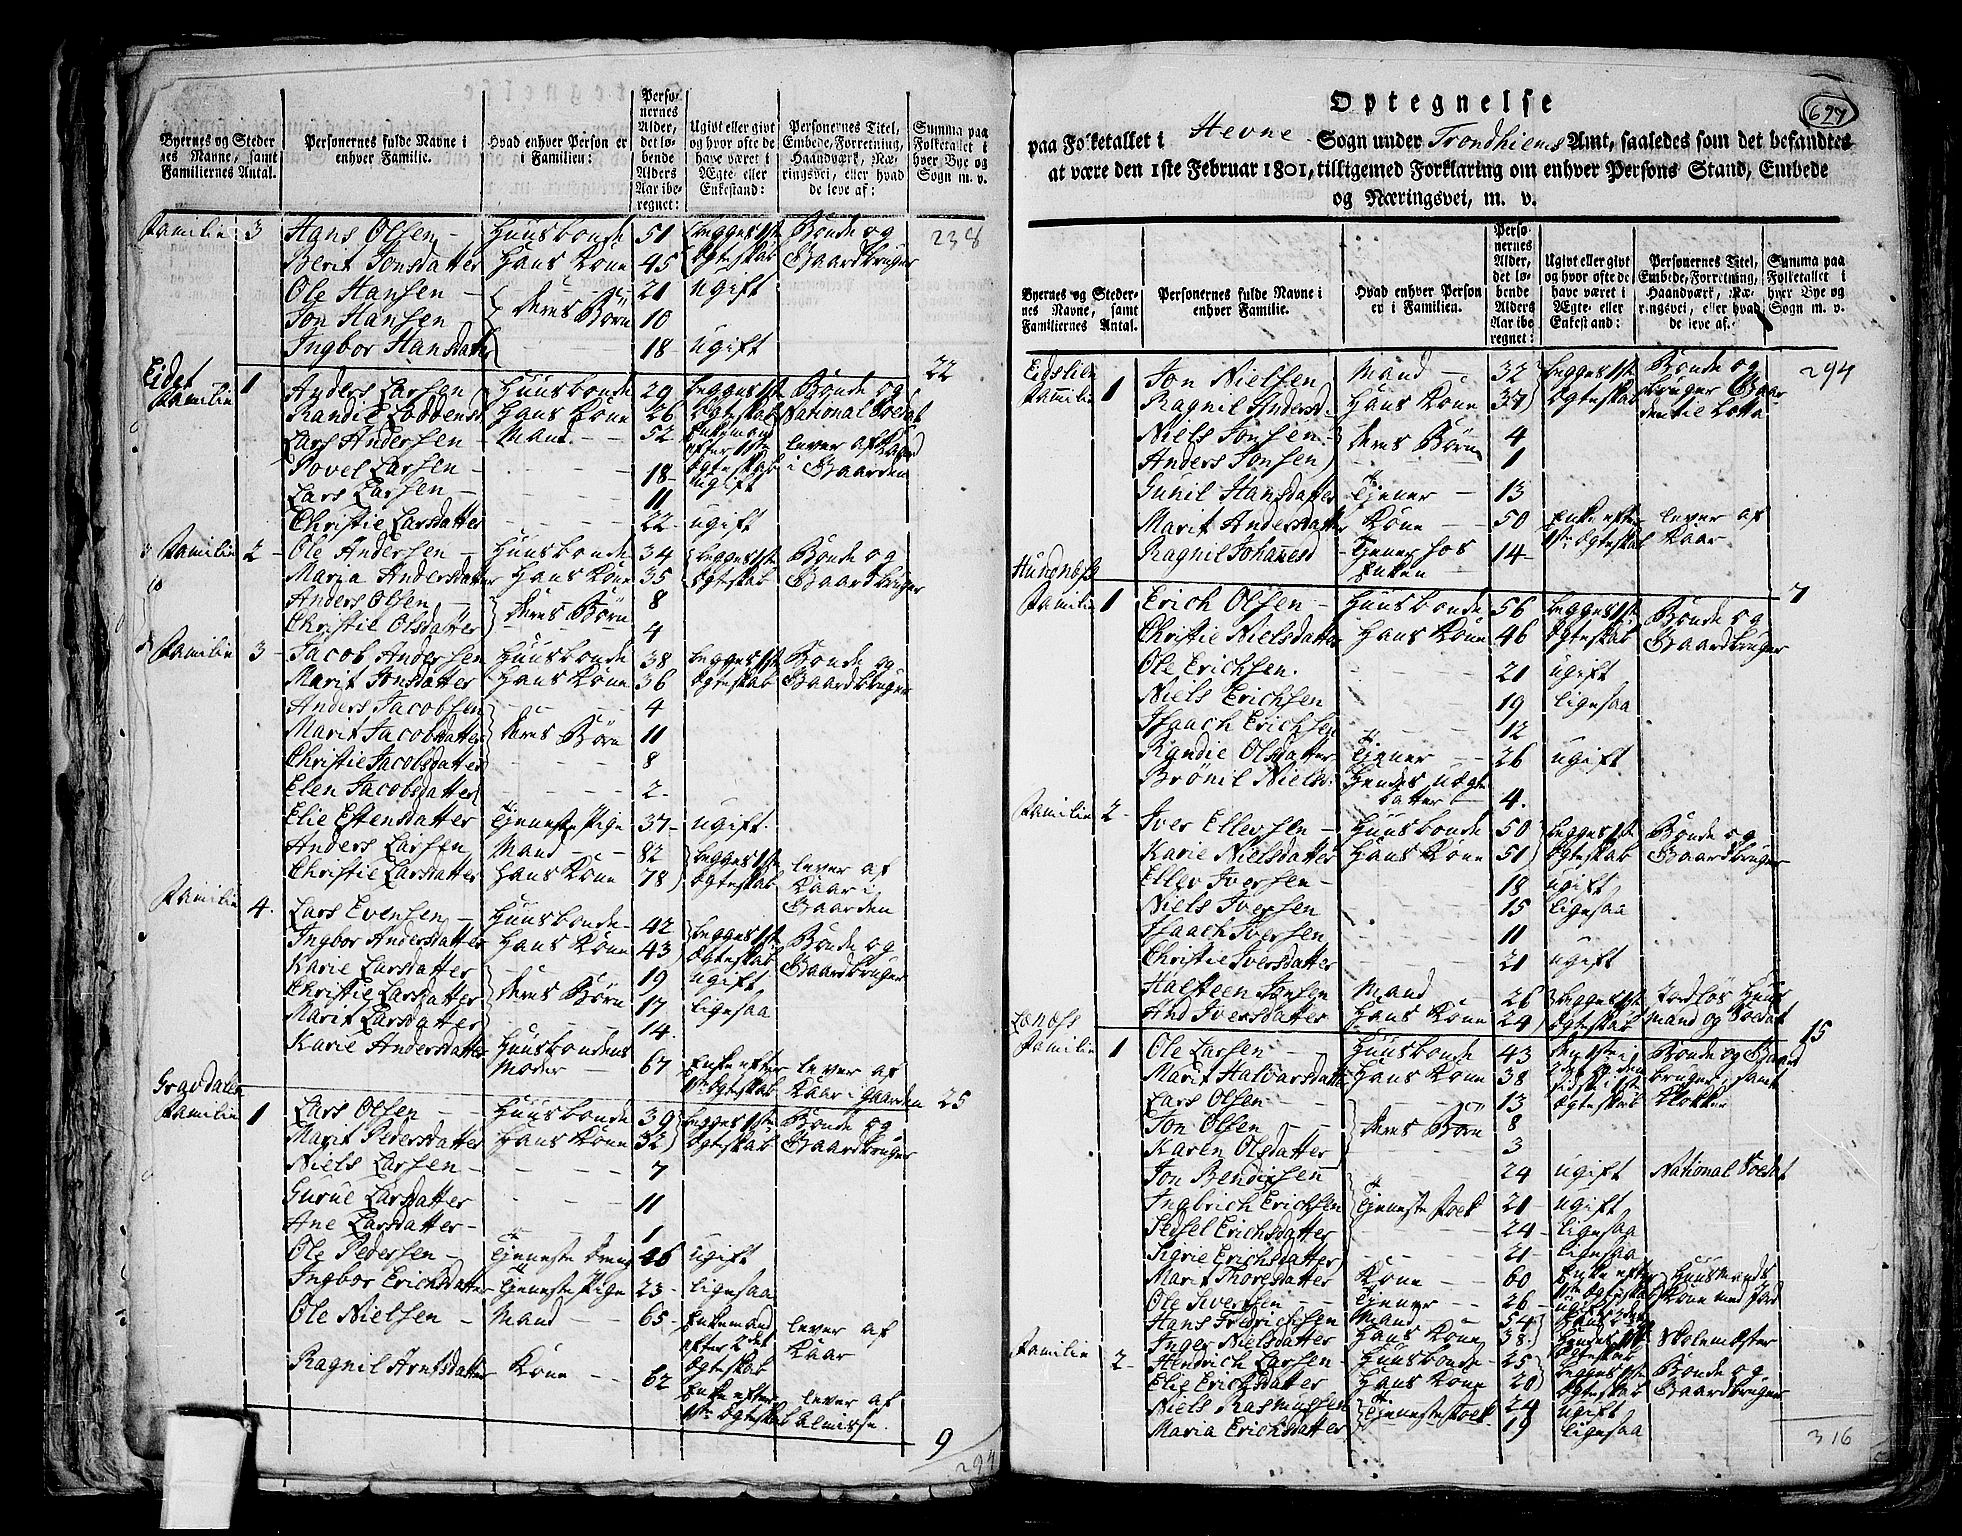 Byernes og Steder-
nes Navne, samt
Familiernes Antal.
Personernes fulde Navne i
enhver Familie.
Hvad enhver Person er
i Familien:
Perso-
nernes
Alder,
det lø-
bende
Alders
Aar ibe-
regnet:
Ugivt eller givt
og hvor ofte de
have været i
Ægte- eller
Enkestand:
Personernes Titel,
Embede, Forretning,
Haandværk, Næ-
ringsvei, eller hvad
de leve af:
Summa paa
Folketallet i
hver Bye og
Sogn m. v.
Familie 3 Hans Olsen - Huusbonde 51 begges 1ste Bonde og 238
Berit Jonsdatter Hans Kone 45 Ægteskab Gaardbruger
Ole Hansen - 21 ugift
Jon Hansen deres Børn 10
Ingbor Hansdatter 18 ugift
Eidet 22
Familie 1 Anders Larsen Huusbonde 29 begges 1ste Bonde og
Randie Loddensd Hans Kone 26 Ægteskab National Soldat
Lars Andersen - Mand - 52 Enkemand lever af Kaar
efter 1ste i Gaarden
Povel Larsen - 18 - Ægteskab
ugift
Lars Larsen - 11
Christie Larsdatter 22 - ugift
Familie 2 - Ole Andersen - Huusbonde 34 begges 1ste Bonde og
Maria Andersdatter Hans Kone 35 Ægteskab Gaardbruger
Anders Olsen - deres Børn 8
Christie Olsdatter 4
Familie 3 - Jacob Andersen Huusbonde 38 begges 1ste Bonde og
Marit Jonsdatter Hans Kone 36 Ægteskab Gaardbruger
Anders Jacobsen 4
Marit Jacobsdatter deres Børn 11
Christie Jacobsdatter 8
Elen Jacobsdatter 2 -
Elie Estensdatter Tjeneste Pige 37 - ugift
Anders Larsen Mand - - 82 begges 1ste lever af
Christie Larsdatter Hans Kone 78 Ægteskab Kaar i
Gaarden
Familie 4. Lars Evensen - Huusbonde - 42 begges 1ste Bonde og
Ingbor Andersdatter Hans Kone 43 Ægteskab Gaardbruger
Karie Larsdatter 19 ugift
Christie Larsdatter deres Børn 17 ligesaa
Marit Larsdatter 14.
Karie Andersdatter Huusbondens
Moder - 67 Enke efter lever af
1ste Ægteskab Kaar i Gaarden 25
Gravdalen
Familie 1 Lars Olsen - Huusbonde 39 begges 1ste Bonde og
Marit Pedersdatter Hans Kone 32 Ægteskab Gaardbruger
Niels Larsen - 7
Gurue Larsdatter 11
Ane Larsdatter - 1
Ole Pedersen - Tjeneste Dreng 26 ugift
Ingbor Erichsdatter Tjeneste Pige 23 - ligesaa
Ole Nielsen - Mand - - 65 - Enkemand lever af
efter 2det Kaar
Ægteskab
Ragnil Arntsdatter Kone - - 62 Enke efter lever af
1ste Ægteskab Almisse.
9
294
697
Optegnelse
paa Folketallet i Hevne Sogn under Trondhiems Amt, saaledes som det befandtes
at være den 1ste Februar 1801, tilligemed Forklaring om enhver Persons Stand, Embede
og Næringsvei, m. v.
Byernes og Steder-
nes Navne, samt
Familiernes Antal.
Personernes fulde Navne i
enhver Familie.
Hvad enhver Person
er i Familien.
Perso-
nernes
Alder,
det lø-
bende
Alders
Aar ibe-
regnet:
Ugivt eller givt
og hvor ofte de
have været i
Ægte- eller
Enkestand:
Personernes Titel,
Embede, Forretning,
Haandværk, Næ-
ringsvei, eller hvad
de leve af:
Summa paa
Folketallet i
hver Bye og
Sogn m. v.
Eidslien Jon Nielsen Mand - 32 begges 1ste Bonde og 294
Familie 1 Ragnil Andersd. Hans Kone 37 Ægteskab bruger Gaar
den
Niels Jonsen - deres Børn 4
Anders Jonsen 1
Gunil Hansdatter Tjener - 13
Marit Andersdatter Kone - - 50 Enke efter lever af
1ste Ægteskab Kaar
Ragnil Johanesd - Tjener hos 14 -
Enken - 7
Familie 1 Erich Olsen - Huusbonde 56 begges 1ste Bonde og
Christie Nielsdatter Hans Kone 46 Ægteskab Gaardbruger
Ole Erichsen. 21 ugift
Niels Erichsen 19 ligesaa
Isaach Erichsen 12
Randie Olsdatter Tjener - - 26 ugift
Brønil Niels: Hendes uægte
datter - 4.
Familie 2 - Iver Ellevsen - Huusbonde 50 begges 1ste Bonde og
Karie Nielsdatter Hans Kone 51 Ægteskab Gaardbruger
Ellev Iversen - 18 ugift
Niels Iversen 15 ligesaa
Isaach Iversen 11
Christie Iversdatter 21 ugift
Halsteen Jonsen Mand - 26 begges 1ste Jordløs Huus
And Iversdatter Hans Kone 24 Ægteskab mand og Soldat 15
Familie 1 Ole Larsen - - Huusbonde 43 Bonde og Gaard
Marit Halvarsdatter Hans Kone 38 bruger, samt
Lars Olsen - 13 Ægteskab Klokker
Jon Olsen - - deres Børn 8
Karen Olsdatter 3
Jon Bendixsen 24 ugift National Soldat
Ingbrich Erichsen Tjenestefolk 21 - ugift
Sedsel Erichsdatter 24 - ligesaa
Sigrie Erichsdatter 21 ligesaa
Marit Thoresdatter Kone - - 60 Enke efter Huusmands
Ole Sivertsen - - Tjener - - 26 - 1ste Ægteskab Kone med Jord
ugift
Hans Fredrichsen Mand 54 hans 2den
Inger Nielsdatter Hans Kone 38. hendes 1ste Skolemester
Ægteskab
Familie 2 - Hendrich Larsen - Huusbonde - 25 begges 1ste Bonde og
Elie Erichsdatter Hans Kone 20 Ægteskab Gaardbruger
Niels Rasmussen Tjenestefolk 24 ugift
Maria Erichsdatter 19 ligesaa
316